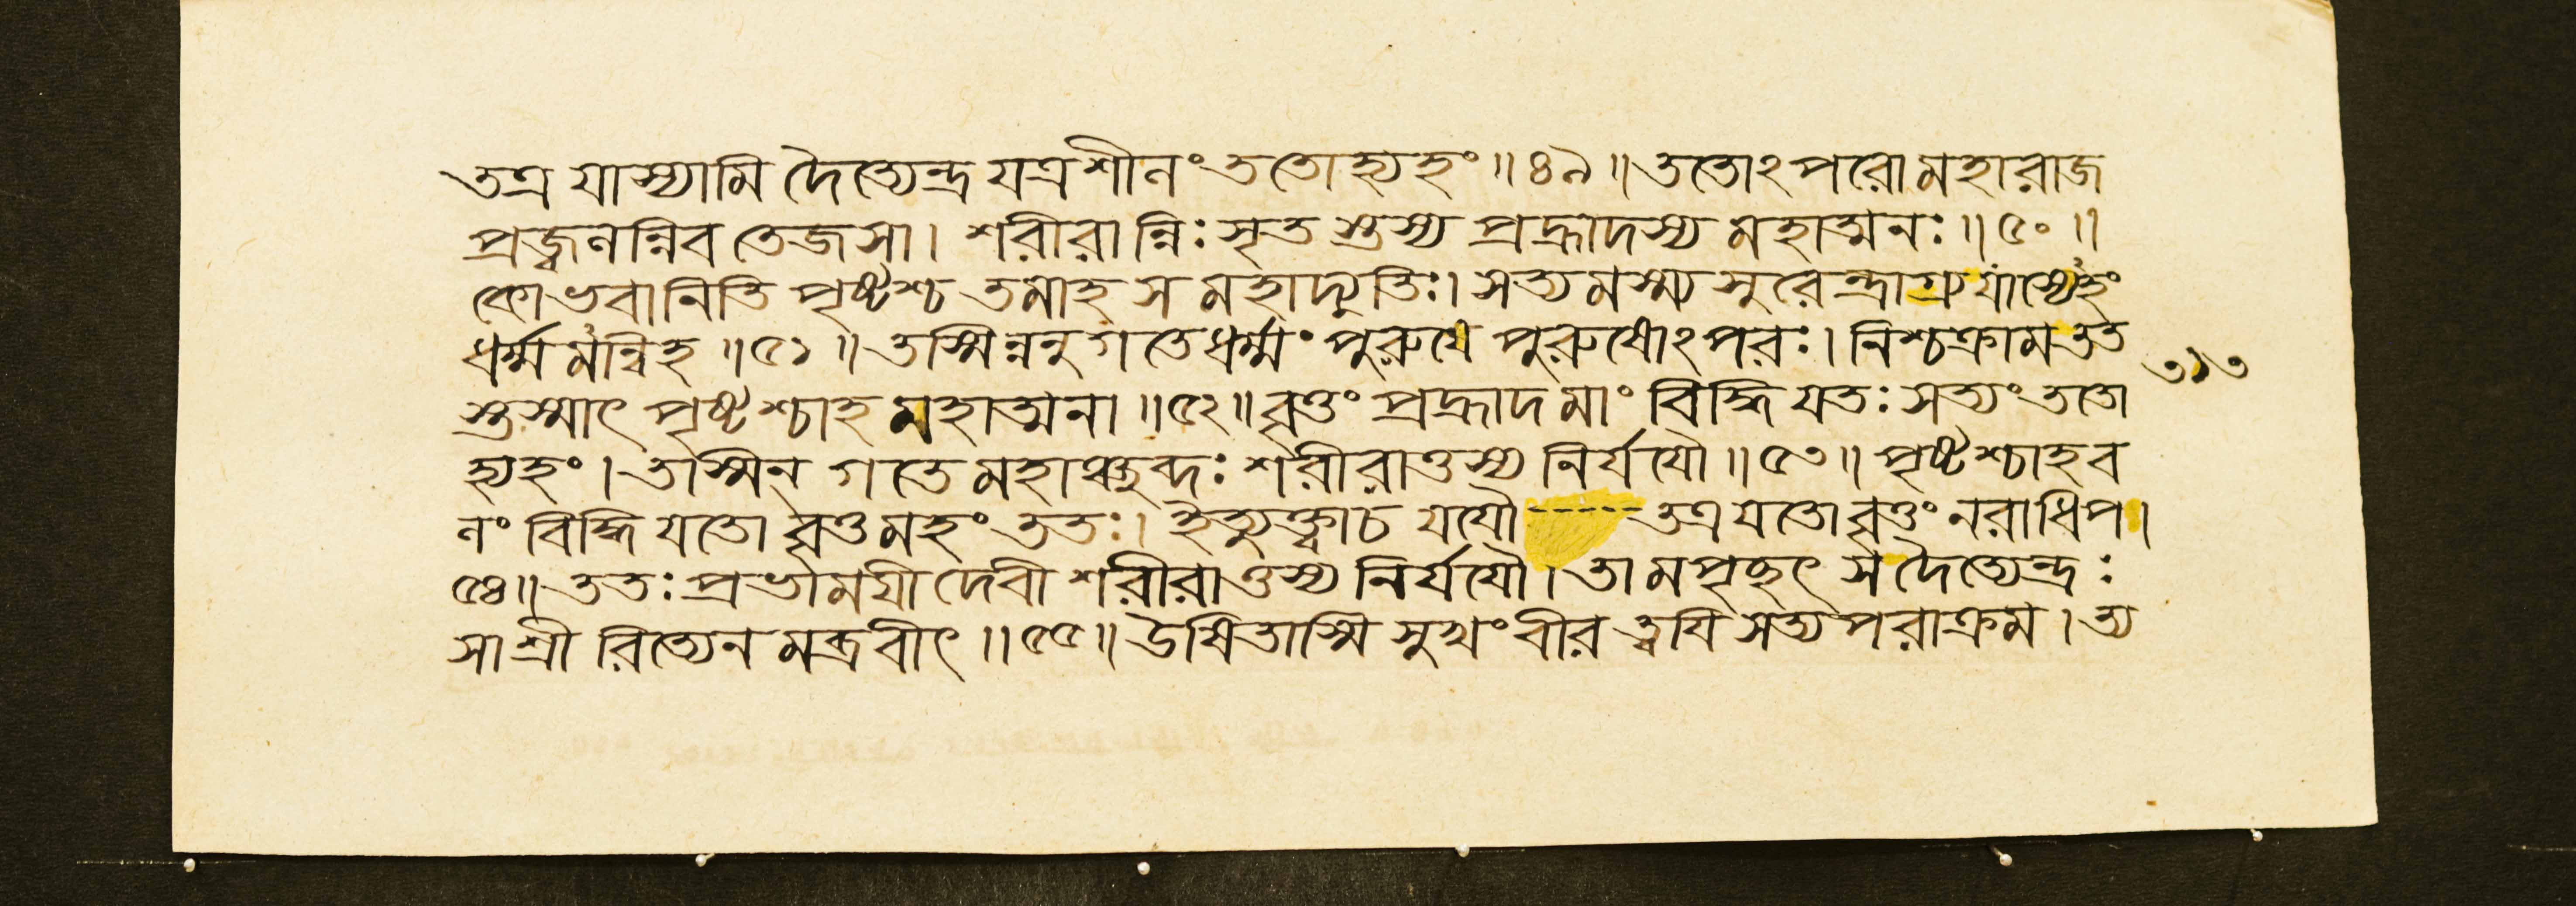 তত্র যাস্যামি দৈত্যেন্দ্র যত্র শীনং ততো হ্যহং ॥ ৪৯ ॥ ততোঽপরো মহারাজ
প্রজ্বনন্নিব তেজসা। শরীরান্নিঃসৃত স্তস্য প্রহ্রাদস্য মহাত্মনঃ ॥ ৫০ ॥
কো ভবানিতি পৃষ্টশ্চ তমাহ স মহাদ্যুতিঃ। সত্যমস্ম্য সুরেন্দ্রাগ্র্য যাস্যেঽহং
ধর্ম্ম মন্বিহ ॥ ৫১ ॥ তস্মিন্ননুগতে ধর্ম্মং পুরুষে পুরুষোঽপরঃ। নিশ্চক্রাম তত
স্তস্মাৎ পৃষ্টশ্চাহ মহাত্মনা ॥ ৫২ ॥ বৃত্তং প্রহ্রাদ মাং বিদ্ধি যতঃ সত্যং ততো
হ্যহং। তস্মিন্ গতে মহাঞ্ছব্দঃ শরীরাত্তস্য নির্যযৌ ॥ ৫৩ ॥ পৃষ্টশ্চাহ ব
নং বিদ্ধি যতো বৃত্তমহং ততঃ। ইত্যুক্ত্বা চ যযৌ ------ তত্র যতো বৃত্তং নরাধিপ।
৫৪ ॥ ততঃ প্রভাময়ী দেবী শরীরাত্তস্য নির্যযৌ। তামপৃচ্ছৎ স দৈত্যেন্দ্রঃ
সা শ্রী রিত্যেন মব্রবীৎ ॥ ৫৫ ॥ উষিতাস্মি সুখং বীর ত্বযি সত্যপরাক্রম। ত্য
৩১৩